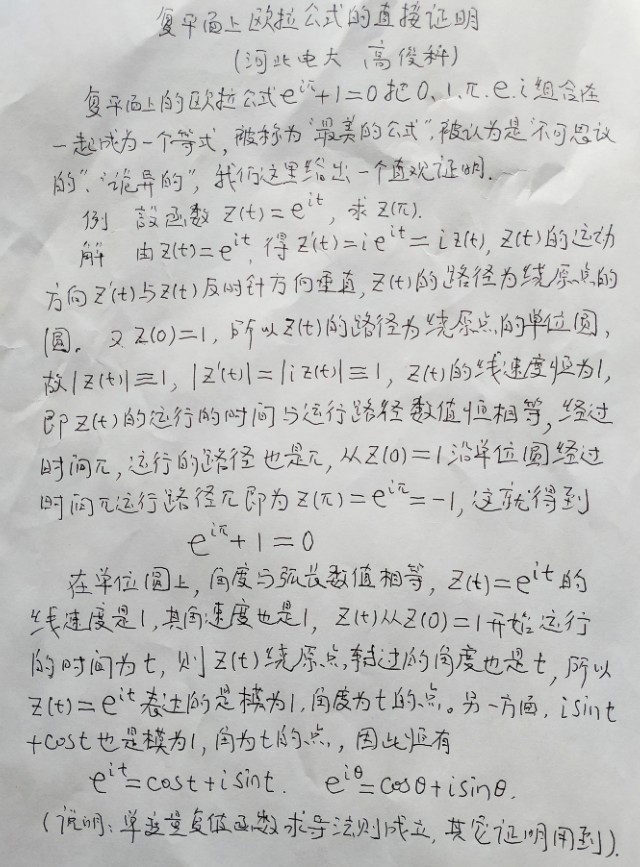 复平面上欧拉公式的直接证明
(河北电大 高俊科)
复平面上的欧拉公式e^{iπ}+1=0把0、1、π、e、i组合在
一起成为一个等式,被称为"最美的公式",被认为是"不可思议
的"、"诡异的",我们这里给出一个直观证明.
例 设函数 Z(t)=e^{it}, 求Z(π).
解 由Z(t)=e^{it}, 得Z'(t)=ie^{it}=iZ(t), Z(t)的运动
方向Z'(t)与Z(t)反时针方向垂直,Z(t)的路径为绕原点的
圆. 又Z(0)=1, 所以Z(t)的路径为绕原点的单位圆,
故|Z(t)|≡1, |Z'(t)|=|iZ(t)|≡1, Z(t)的线速度恒为1,
即Z(t)的运行的时间与运行路径数值恒相等,经过
时间π,运行的路径也是π,从Z(0)=1沿单位圆经过
时间π运行路径π即为Z(π)=e^{iπ}=-1,这就得到
e^{iπ}+1=0
在单位圆上,角度与弧长数值相等,Z(t)=e^{it}的
线速度是1,其角速度也是1, Z(t)从Z(0)=1开始运行
的时间为t,则Z(t)绕原点转过的角度也是t,所以
Z(t)=e^{it}表达的是模为1,角度为t的点。另一方面,isint
+cost也是模为1,角为t的点,因此恒有
e^{it}=cost+isint. e^{iθ}=cosθ+isinθ.
(说明:单变量复值函数求导法则成立,其它证明用到).